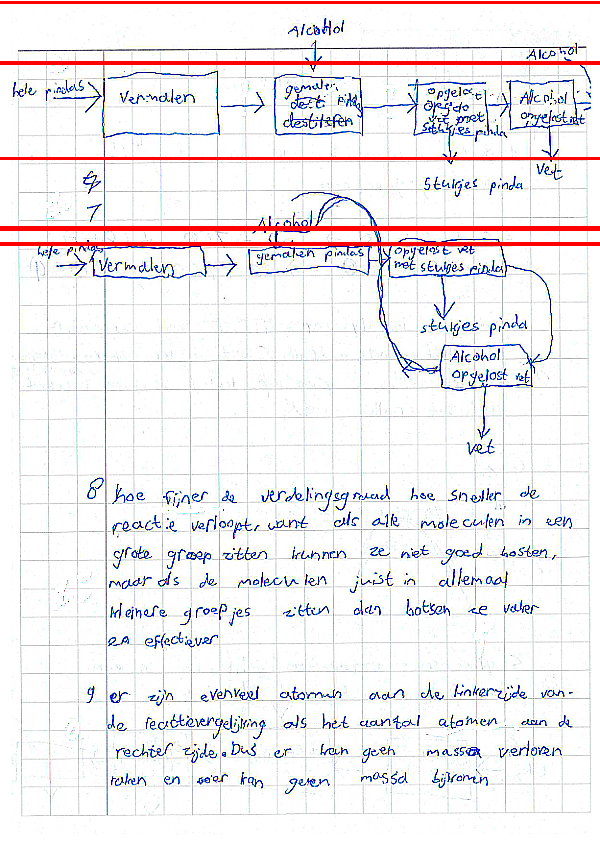 Alcohol
Alcohol
hele pindas
Vermalen
gemalen
pinda
opgelost
vet met
stukjes pinda
Alcohol
opgelost vet
stukjes pinda
vet
7
Alcohol
hele pindas
Vermalen
gemalen pindas
opgelost vet
met stukjes pinda
stukjes pinda
Alcohol
opgelost vet
vet
8 hoe fijner de verdelingsgraad hoe sneller de
reactie verloopt, want als alle moleculen in een
grote groep zitten kunnen ze niet goed bosten,
maar als de moleculen juist in allemaal
kleinere groepjes zitten dan botsen ze vaker
en effectiever
9 er zijn evenveel atomen aan de linkerzijde van
de reactievergelijking als het aantal atomen aan de
rechter zijde. Dus er kan geen massa verloren
raken en er kan geen massa bijkomen